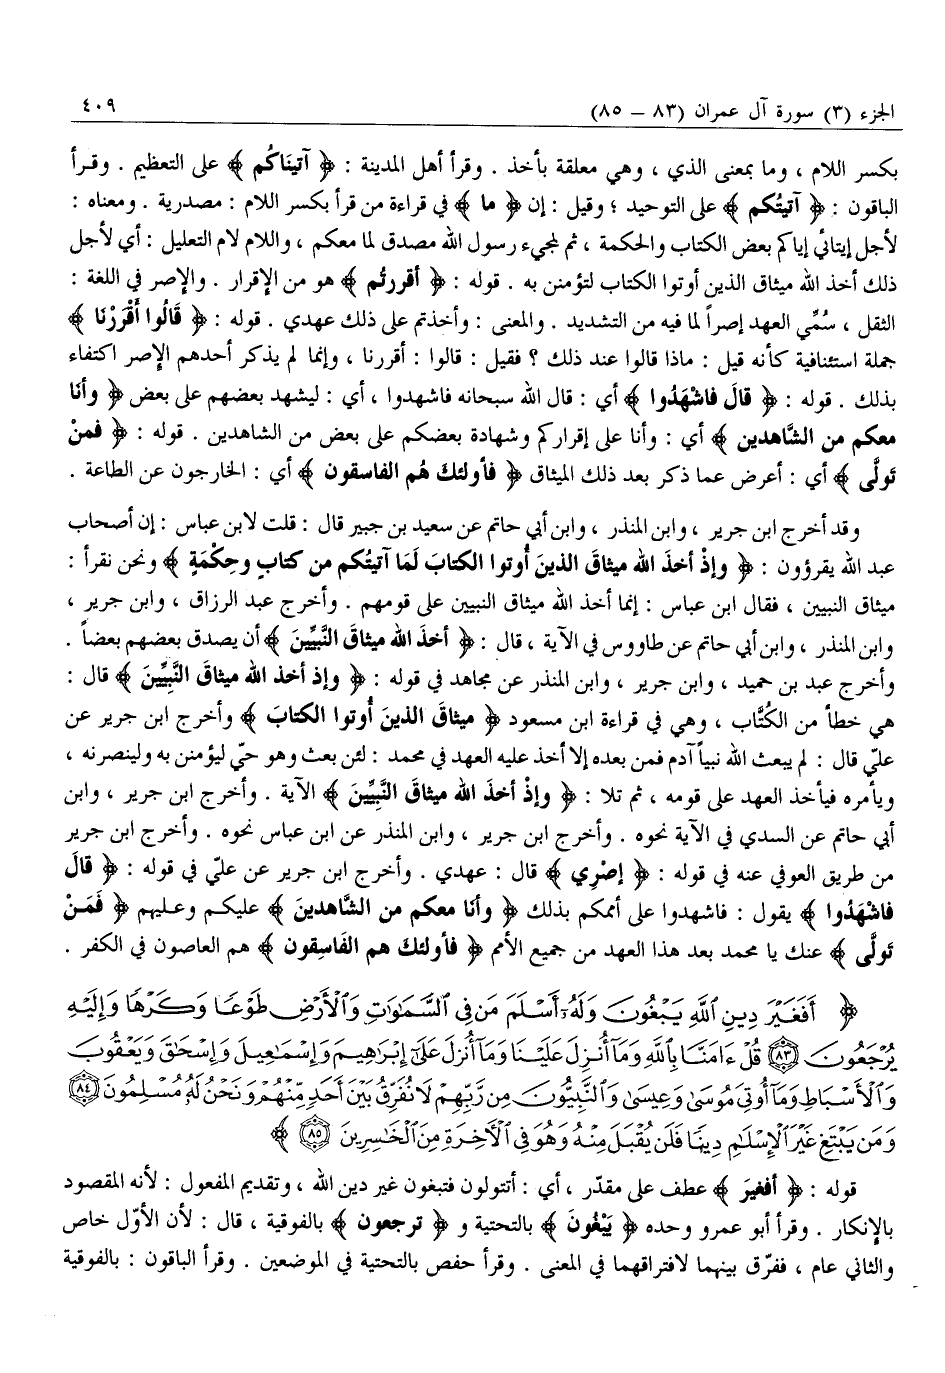 الجزء (٣) سورة آل عمران (٨٣ – ٨٥) ٤٠٩
بكسر اللام ، وما بمعنى الذي ، وهي معلقة بأخذ . وقرأ أهل المدينة : ﴿ آتيناكُم ﴾ على التعظيم . وقرأ
الباقون : ﴿ آتيتُكم ﴾ على التوحيد ؛ وقيل : إن ﴿ ما ﴾ في قراءة من قرأ بكسر اللام : مصدرية . ومعناه :
لأجل إيتائي إياكم بعض الكتاب والحكمة ، ثم لمجيء رسول الله مصدق لما معكم ، واللام لام التعليل : أي لأجل
ذلك أخذ الله ميثاق الذين أوتوا الكتاب لتؤمنن به . قوله : ﴿ أقررتُم ﴾ هو من الإقرار . والإصر في اللغة :
الثقل ، سُمِّي العهد إصراً لما فيه من التشديد . والمعنى : وأخذتم على ذلك عهدي . قوله : ﴿ قَالُوا أَقْرَرْنَا ﴾
جملة استئنافية كأنه قيل : ماذا قالوا عند ذلك ؟ فقيل : قالوا : أقررنا ، وإنما لم يذكر أحدهم الإصر اكتفاء
بذلك . قوله : ﴿ قال فاشْهَدُوا ﴾ أي : قال الله سبحانه فاشهدوا ، أي : ليشهد بعضهم على بعض ﴿ وأنَا
معكم من الشَّاهدين ﴾ أي : وأنا على إقراركم وشهادة بعضكم على بعض من الشاهدين . قوله : ﴿ فمنْ
تَولَّى ﴾ أي : أعرض عما ذكر بعد ذلك الميثاق ﴿ فأولئكَ هُم الفاسقون ﴾ أي : الخارجون عن الطاعة .
وقد أخرج ابن جرير ، وابن المنذر ، وابن أبي حاتم عن سعيد بن جبير قال : قلت لابن عباس : إن أصحاب
عبد الله يقرؤون : ﴿ وإذْ أخذَ الله ميثاقَ الذينَ أُوتوا الكتابَ لَمَا آتيتُكم من كتابٍ وحِكْمَةٍ ﴾ ونحن نقرأ :
ميثاق النبيين ، فقال ابن عباس : إنما أخذ الله ميثاق النبيين على قومهم . وأخرج عبد الرزاق ، وابن جرير ،
وابن المنذر ، وابن أبي حاتم عن طاووس في الآية ، قال : ﴿ أخذَ الله ميثاقَ النَّبِيِّينَ ﴾ أن يصدق بعضهم بعضاً .
وأخرج عبد بن حميد ، وابن جرير ، وابن المنذر عن مجاهد في قوله : ﴿ وإذ أخذ الله ميثاقَ النَّبِيِّينَ ﴾ قال :
هي خطأ من الكُتَّاب ، وهي في قراءة ابن مسعود ﴿ ميثاقَ الذينَ أُوتوا الكتابَ ﴾ وأخرج ابن جرير عن
عليّ قال : لم يبعث الله نبياً آدم فمن بعده إلا أخذ عليه العهد في محمد : لئن بعث وهو حيّ ليؤمنن به ولينصرنه ،
ويأمره فيأخذ العهد على قومه ، ثم تلا : ﴿ وإذْ أخذَ الله ميثاقَ النَّبِيِّينَ ﴾ الآية . وأخرج ابن جرير ، وابن
أبي حاتم عن السدي في الآية نحوه . وأخرج ابن جرير ، وابن المنذر عن ابن عباس نحوه . وأخرج ابن جرير
من طريق العوفي عنه في قوله : ﴿ إصْرِي ﴾ قال : عهدي . وأخرج ابن جرير عن عليّ في قوله : ﴿ قالَ
فاشْهَدُوا ﴾ يقول : فاشهدوا على أممكم بذلك ﴿ وأنا معكم من الشَّاهدينَ ﴾ عليكم وعليهم ﴿ فَمَنْ
تولَّى ﴾ عنك يا محمد بعد هذا العهد من جميع الأمم ﴿ فأولئكَ هم الفَاسِقون ﴾ هم العاصون في الكفر .
﴿ أَفَغَيْرَ دِينِ ٱللَّهِ يَبْغُونَ وَلَهُۥٓ أَسْلَمَ مَن فِى ٱلسَّمَٰوَٰتِ وَٱلْأَرْضِ طَوْعًا وَكَرْهًا وَإِلَيْهِ
يُرْجَعُونَ ٨٣ قُلْ ءَامَنَّا بِٱللَّهِ وَمَآ أُنزِلَ عَلَيْنَا وَمَآ أُنزِلَ عَلَىٰٓ إِبْرَٰهِيمَ وَإِسْمَٰعِيلَ وَإِسْحَٰقَ وَيَعْقُوبَ
وَٱلْأَسْبَاطِ وَمَآ أُوتِىَ مُوسَىٰ وَعِيسَىٰ وَٱلنَّبِيُّونَ مِن رَّبِّهِمْ لَا نُفَرِّقُ بَيْنَ أَحَدٍ مِّنْهُمْ وَنَحْنُ لَهُۥ مُسْلِمُونَ ٨٤
وَمَن يَبْتَغِ غَيْرَ ٱلْإِسْلَٰمِ دِينًا فَلَن يُقْبَلَ مِنْهُ وَهُوَ فِى ٱلْأَخِرَةِ مِنَ ٱلْخَٰسِرِينَ ٨٥ ﴾
قوله : ﴿ أفغيرَ ﴾ عطف على مقدّر ، أي : أتتولون فتبغون غير دين الله ، وتقديم المفعول : لأنه المقصود
بالإنكار . وقرأ أبو عمرو وحده ﴿ يَبْغُونَ ﴾ بالتحتية و ﴿ ترجعون ﴾ بالفوقية ، قال : لأن الأوّل خاص
والثاني عام ، ففرّق بينهما لافتراقهما في المعنى . وقرأ حفص بالتحتية في الموضعين . وقرأ الباقون : بالفوقية